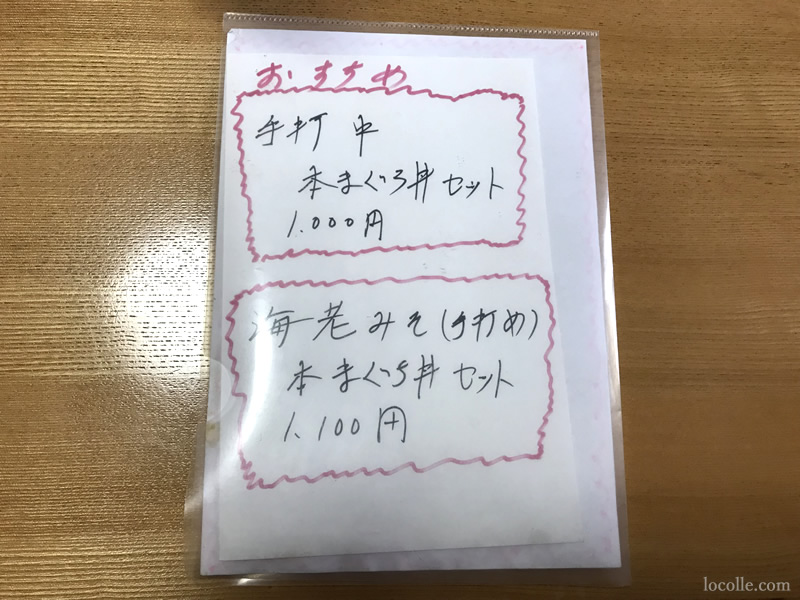 おすすめ
手打 中
本まぐろ丼セット
1.000円
海老みそ(手打め)
本まぐろ丼セット
1.100円
locolle.com